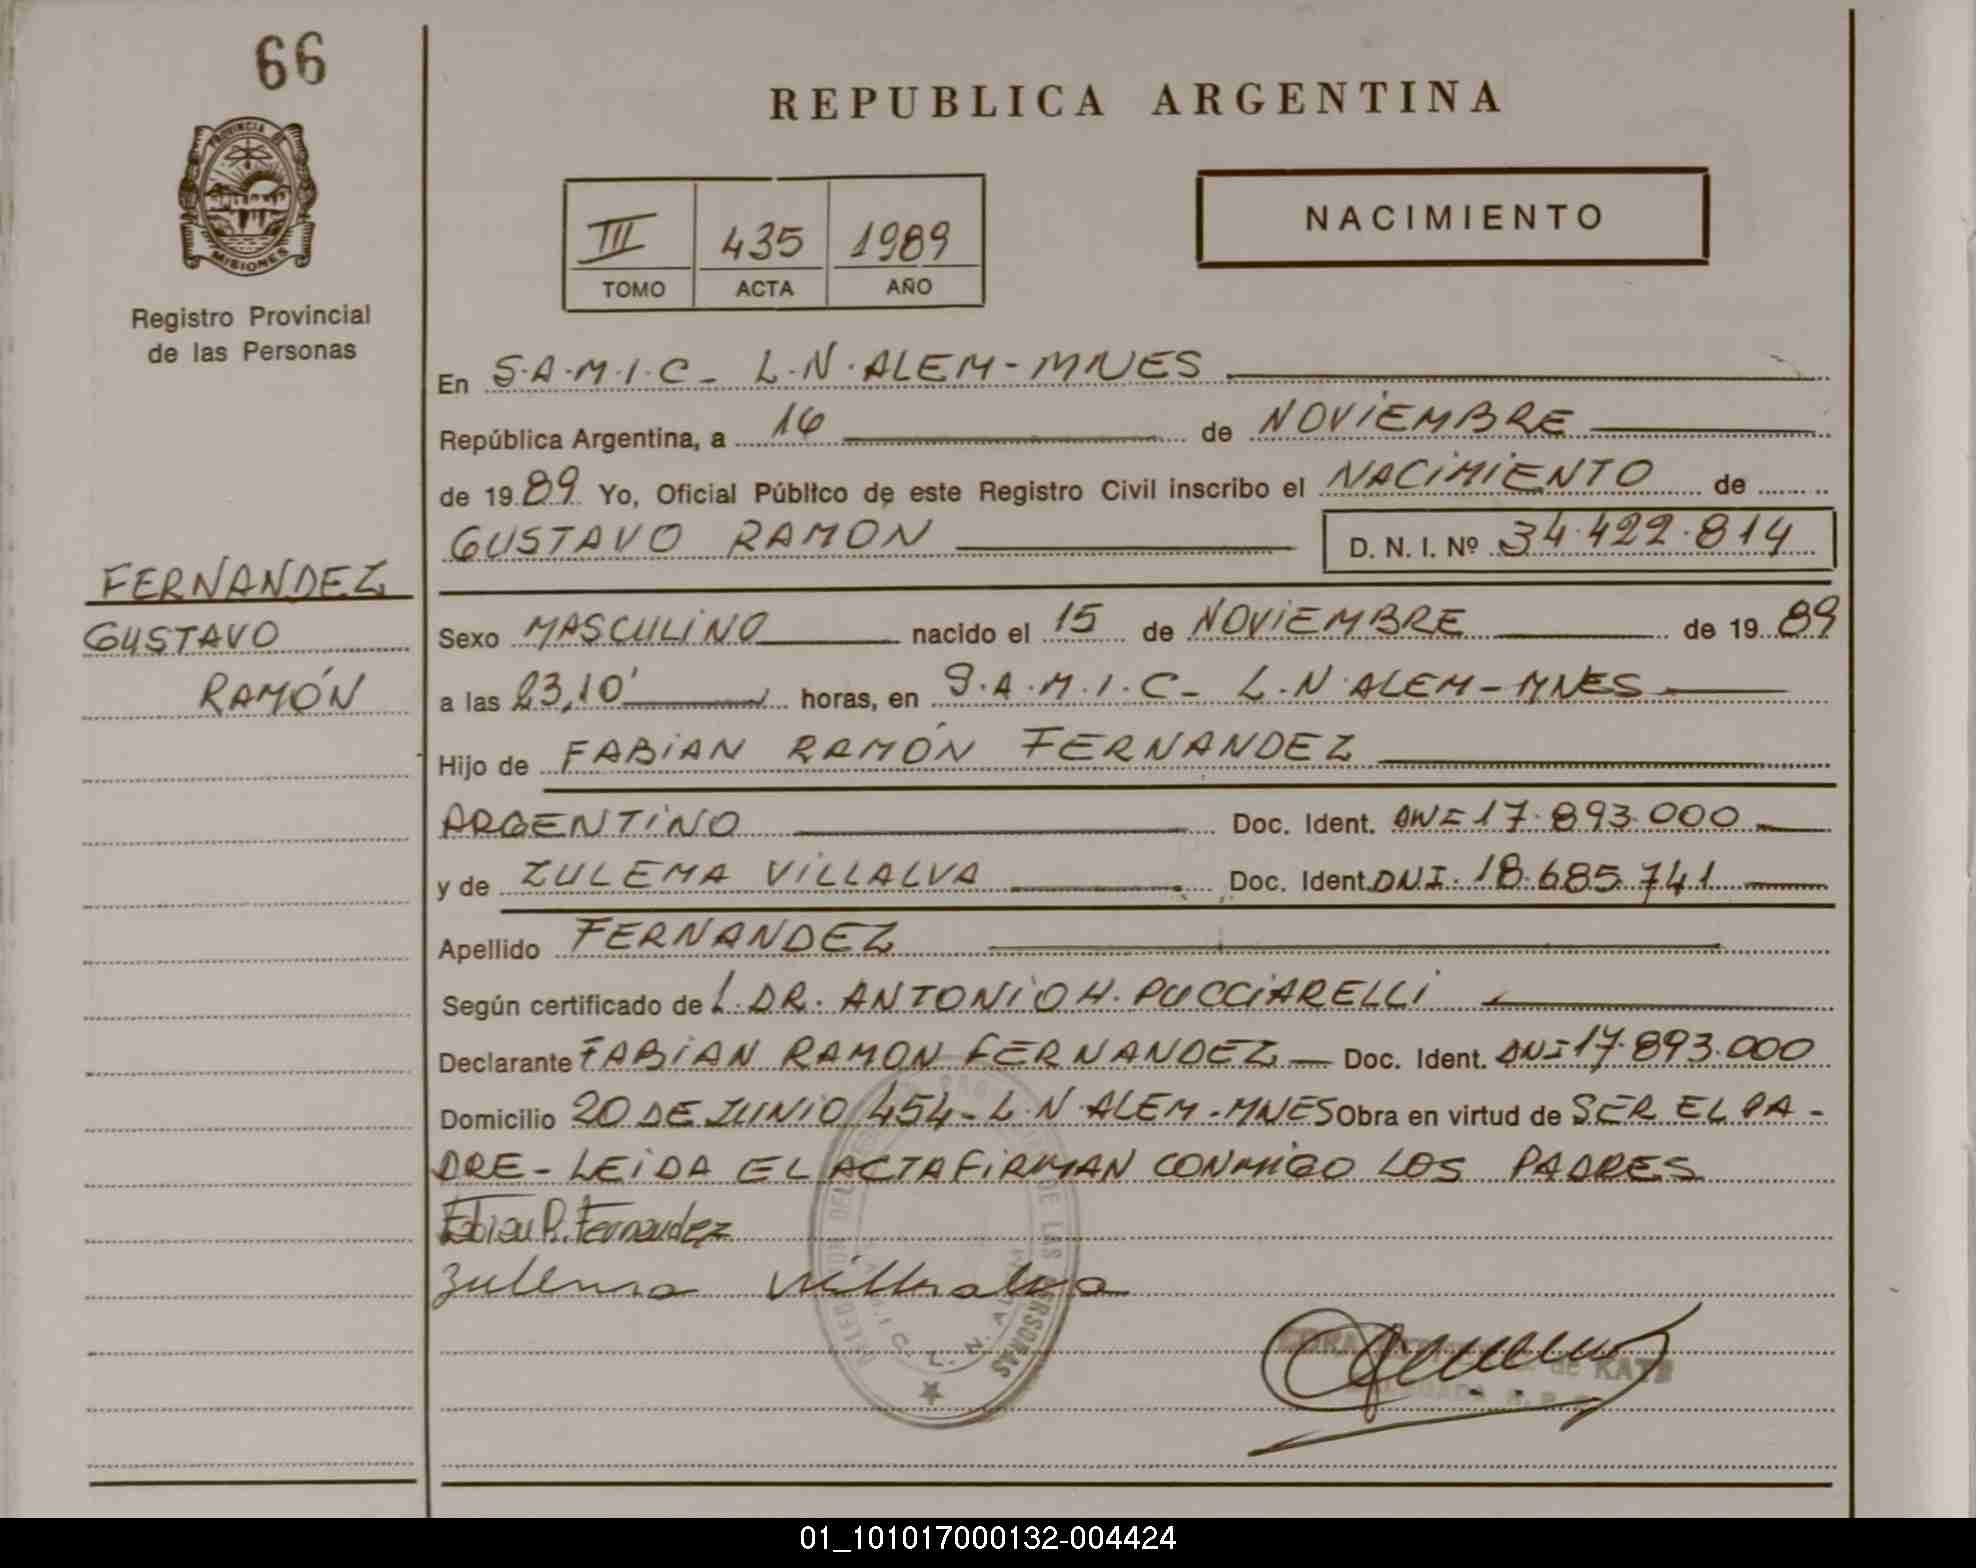 66
PROVINCIA DE
MISIONES
Registro Provincial
de las Personas
FERNANDEZ
GUSTAVO
RAMÓN
REPUBLICA ARGENTINA
III 435 1989
TOMO ACTA AÑO
NACIMIENTO
En S.A.M.I.C - L.N. ALEM - MNES
República Argentina, a 16 de NOVIEMBRE
de 1989 Yo, Oficial Público de este Registro Civil inscribo el NACIMIENTO de
GUSTAVO RAMON D. N. I. Nº 34.422.814
Sexo MASCULINO nacido el 15 de NOVIEMBRE de 1989
a las 23,10' horas, en S.A.M.I.C - L.N. ALEM - MNES
Hijo de FABIAN RAMÓN FERNANDEZ
ARGENTINO Doc. Ident. DNI 17.893.000
y de ZULEMA VILLALVA Doc. Ident. DNI. 18.685.741
Apellido FERNANDEZ
Según certificado de L. DR. ANTONIO H. PUCCIARELLI
Declarante FABIAN RAMON FERNANDEZ - Doc. Ident. DNI 17.893.000
Domicilio 20 DE JUNIO 454 - L.N. ALEM - MNES Obra en virtud de SER EL PA-
DRE - LEIDA EL ACTA FIRMAN CONMIGO LOS PADRES
Fabian R. Fernandez
Zulema Villalva
DE LAS PERSONAS
L. N. ALEM
de KATZ
01_101017000132-004424